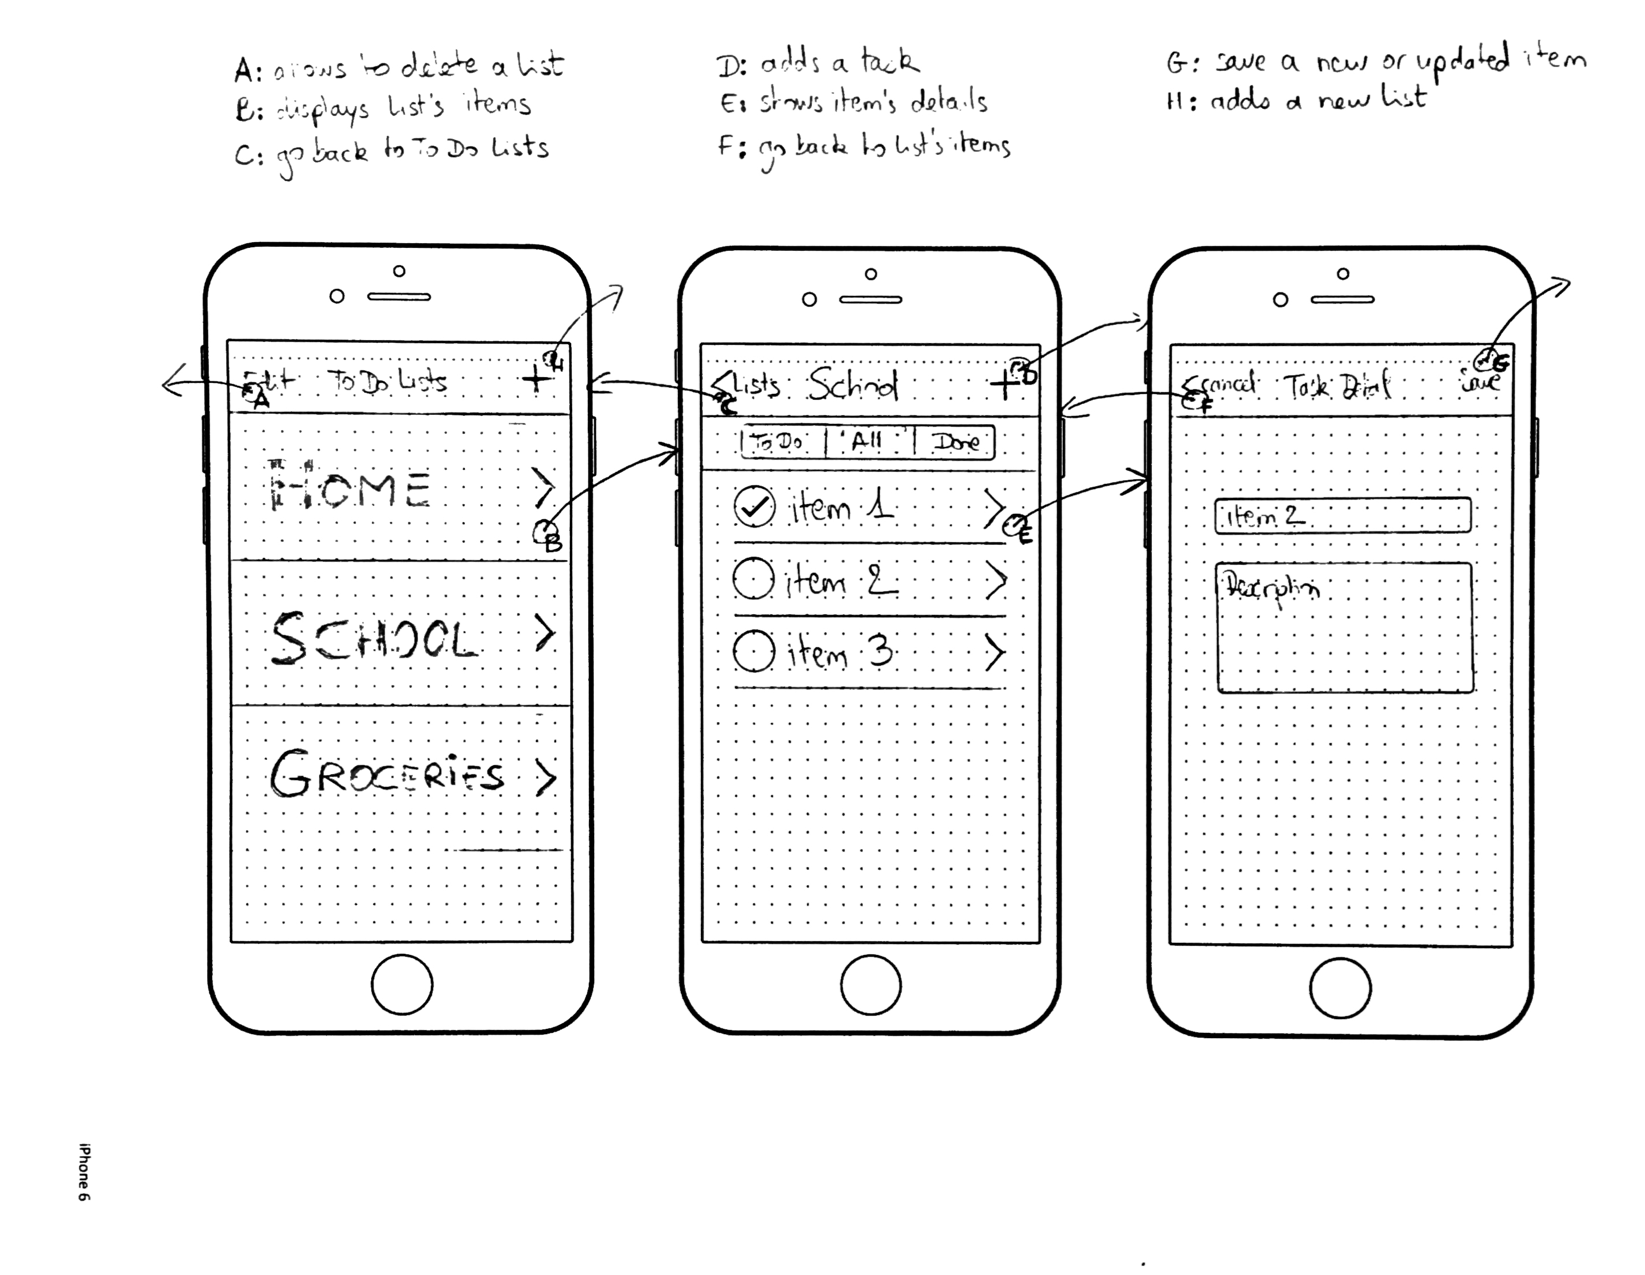 A: allows to delete a list
B: displays list's items
C: go back to To Do Lists
D: adds a task
E: shows item's details
F: go back to list's items
G: save a new or updated item
H: adds a new list
Edit To Do Lists +
H
A
HOME >
B
SCHOOL >
GROCERIES >
< Lists School +
D
C
To Do All Done
item 1 >
E
item 2 >
item 3 >
< cancel Task Detail Save
G
F
item 2
Description
iPhone 6